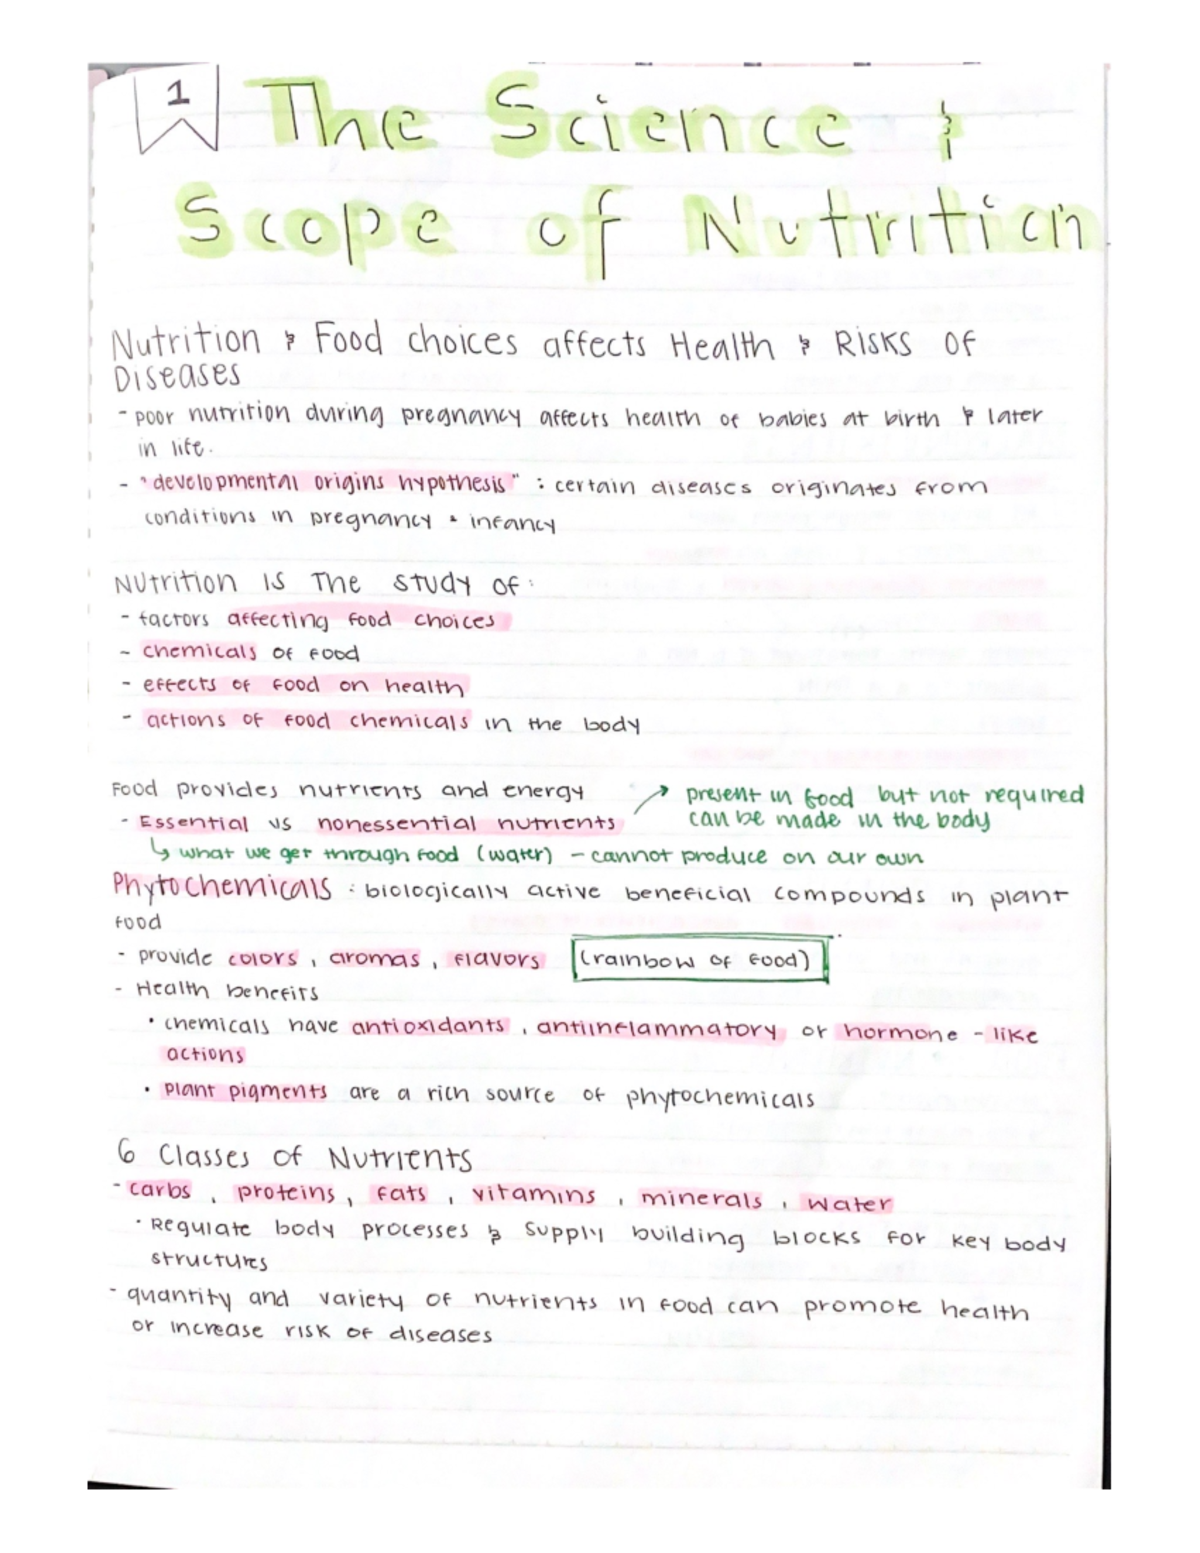 1
The Science &
Scope of Nutrition
Nutrition & Food choices affects Health & Risks of
Diseases
- poor nutrition during pregnancy affects health of babies at birth & later
in life.
- "developmental origins hypothesis" : certain diseases originates from
conditions in pregnancy & infancy
Nutrition is the study of:
- factors affecting food choices
- chemicals of food
- effects of food on health
- actions of food chemicals in the body
Food provides nutrients and energy
→ present in food but not required
can be made in the body
- Essential vs nonessential nutrients
↳ what we get through food (water) - cannot produce on our own
Phytochemicals : biologically active beneficial compounds in plant
food
- provide colors, aromas, flavors (rainbow of food)
- Health benefits
• chemicals have antioxidants, antiinflammatory or hormone - like
actions
• plant pigments are a rich source of phytochemicals
6 Classes of Nutrients
- carbs, proteins, fats, vitamins, minerals, water
• Regulate body processes & supply building blocks for key body
structures
- quantity and variety of nutrients in food can promote health
or increase risk of diseases